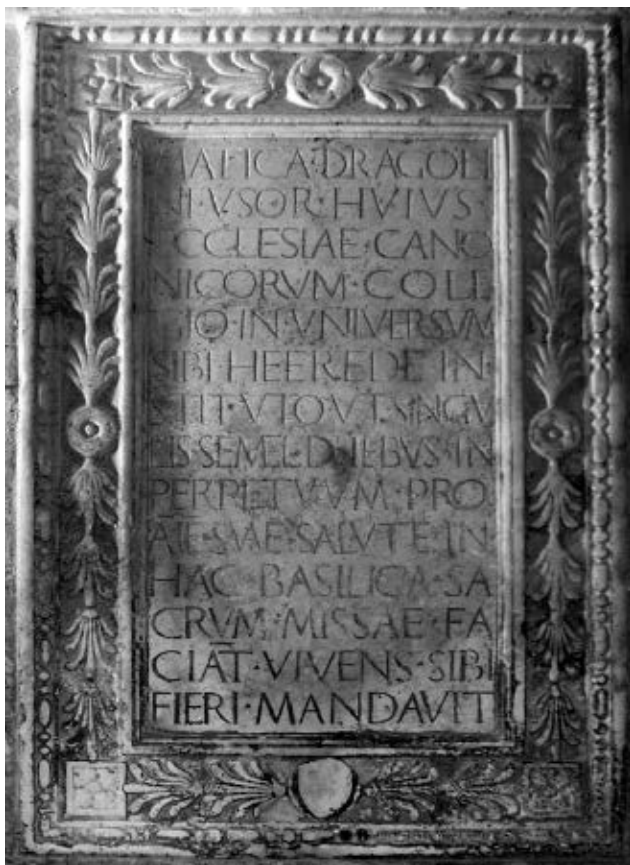 DRAGOLI
NI·VSOR·HVIVS·
ECCLESIAE·CANO
NICORVM·COLLE
GIO·IN·VNIVERSVM
SIBI HEEREDE·IN·
STIT·VTO·VT·SINGV
LIS·SEMEL·DIIEBVS·IN
PERPETVVM·PRO
AIE·SVAE·SALVTE·IN
HAC·BASILICA·SA
CRVM·MISSAE·FA
CIAT·VIVENS·SIBI
FIERI·MANDAVIT